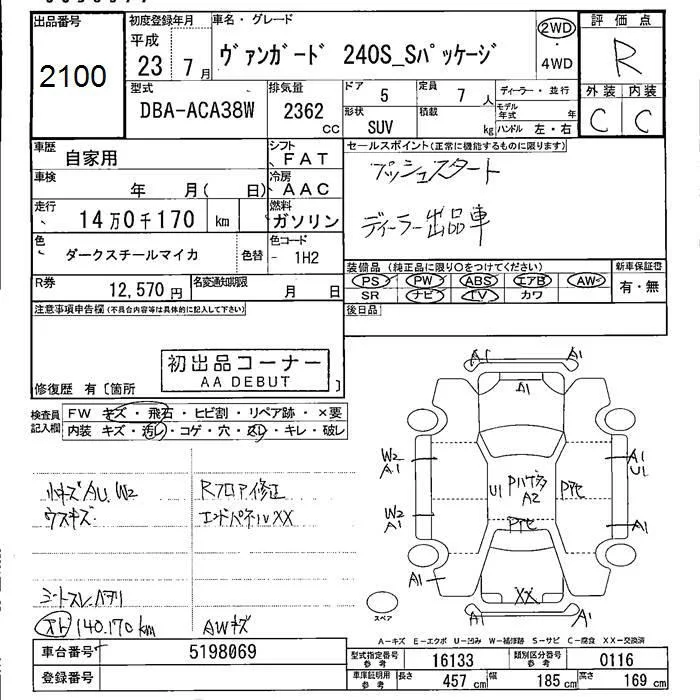 出品番号
2100
初度登録年月
平成
23 7月
車名・グレード
ヴァンガード 240S_Sパッケージ
2WD
4WD
評価点
R
外装 内装
C C
型式
DBA-ACA38W
排気量
2362
CC
ドア
5
定員
7 人
形状
SUV
積載
kg
ディーラー・並行
モデル年式 年
ハンドル 左・右
車歴
自家用
シフト
FAT
車検
年 月( 日)
冷房
AAC
走行
14万0千170 km
燃料
ガソリン
色
ダークスチールマイカ
色替
色コード
- 1H2
R券
12,570 円
名変通知期限
月 日
セールスポイント(正常に機能するものに限ります)
プッシュスタート
ディーラー出品車
装備品(純正品に限り○をつけてください)
PS PW ABS エアB AW
SR ナビ TV カワ
新車保証書
有・無
後日品
注意事項申告欄(不具合内容等は具体的に記入して下さい)
初出品コーナー
AA DEBUT
修復歴 有〔箇所 〕
検査員記入欄
FW キズ・飛石・ヒビ割・リペア跡・×要
内装 キズ・汚レ・コゲ・穴・スレ・キレ・破レ
小キズAU、W2
ウスキズ
Rフロア修正
エンドパネルXX
シートスレ、ヘタリ
メト 140,170km
AWキズ
A1 A1
A1
W2
A1
A1
U1
U1
A2
W2
A1
A1
A1
XX
A1 A1
スペア
A－キズ E－エクボ U－凹み W－補修跡 S－サビ C－腐食 XX－交換済
車台番号
5198069
登録番号
型式指定番号
参考
16133
類別区分番号
参考
0116
車庫証明用
参考
長さ
457 cm
幅
185 cm
高さ
169 cm